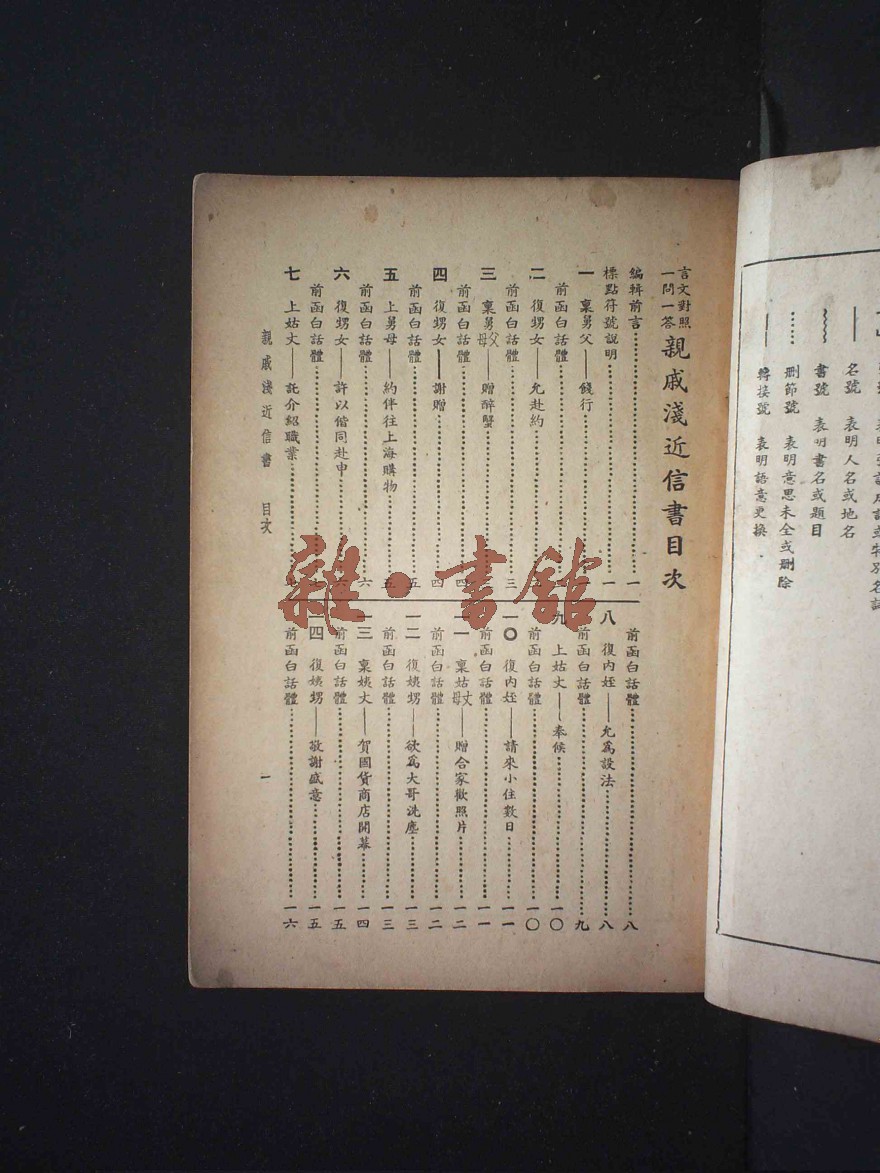 名號　表明人名或地名
書號　表明書名或題目
刪節號　表明意思未全或刪除
轉換號　表明語意更換
言文對照
一問一答
親戚淺近信書目次
編輯前言……一
標點符號說明……一
一　稟舅父——餞行……
前函白話體……
二　復甥女——允赴約……
前函白話體……三
三　稟舅父母——贈醉蟹……
前函白話體……四
四　復甥女——謝贈……四
前函白話體……五
五　上舅母——約伴往上海購物……五
前函白話體……六
六　復甥女——許以偕同赴申……六
前函白話體……
七　上姑丈——託介紹職業……
前函白話體……八
八　復內姪——允為設法……八
前函白話體……九
九　上姑丈——奉候……一〇
前函白話體……一〇
一〇　復內姪——請來小住數日……一一
前函白話體……一一
一一　稟姑丈母——贈合家歡照片……一二
前函白話體……一二
一二　復姨甥——欲為大哥洗塵……一三
前函白話體……一三
一三　稟姨丈——賀國貨商店開幕……一四
前函白話體……一五
一四　復姨甥——敬謝盛意……一五
前函白話體……一六
親戚淺近信書　目次
一
雜·書館